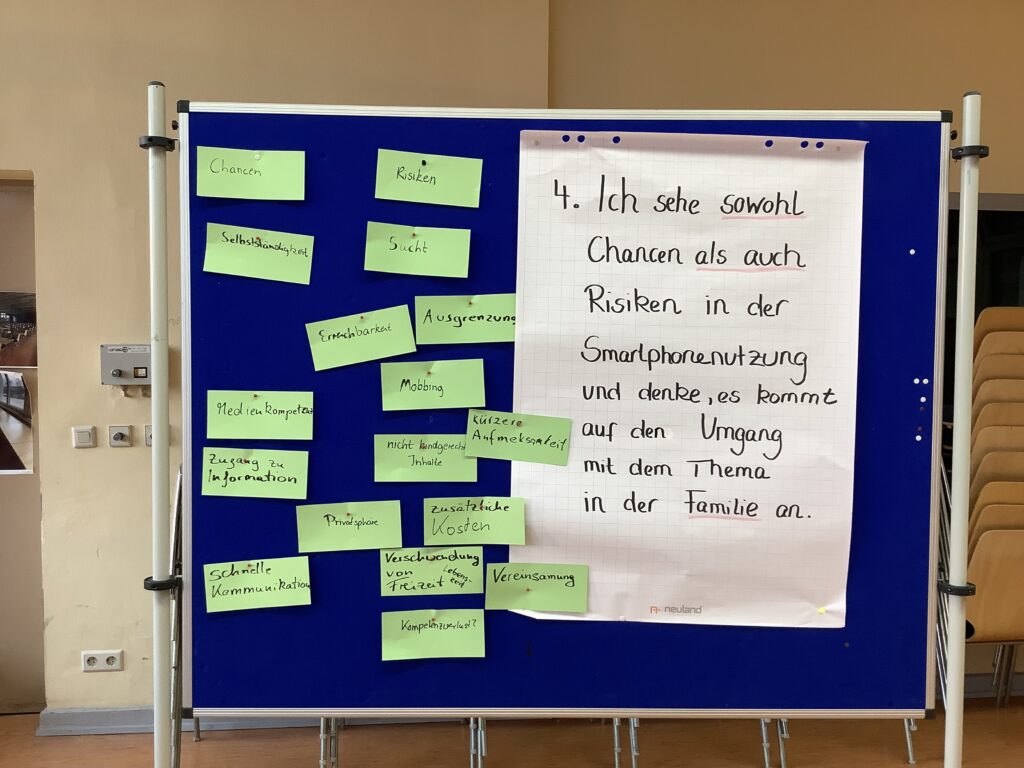 Chancen
Risiken
Selbstständigkeit
Sucht
Erreichbarkeit
Ausgrenzung
Mobbing
Medienkompetenz
nicht kindgerechte
Inhalte
kürzere
Aufmeksamkeit
Zugang zu
Information
Privatsphäre
zusätzliche
Kosten
schnelle
Kommunikation
Verschwendung
von Lebens-
Freizeit zeit
Vereinsamung
Kompetenzverlust?
4. Ich sehe sowohl
Chancen als auch
Risiken in der
Smartphonenutzung
und denke, es kommt
auf den Umgang
mit dem Thema
in der Familie an.
neuland